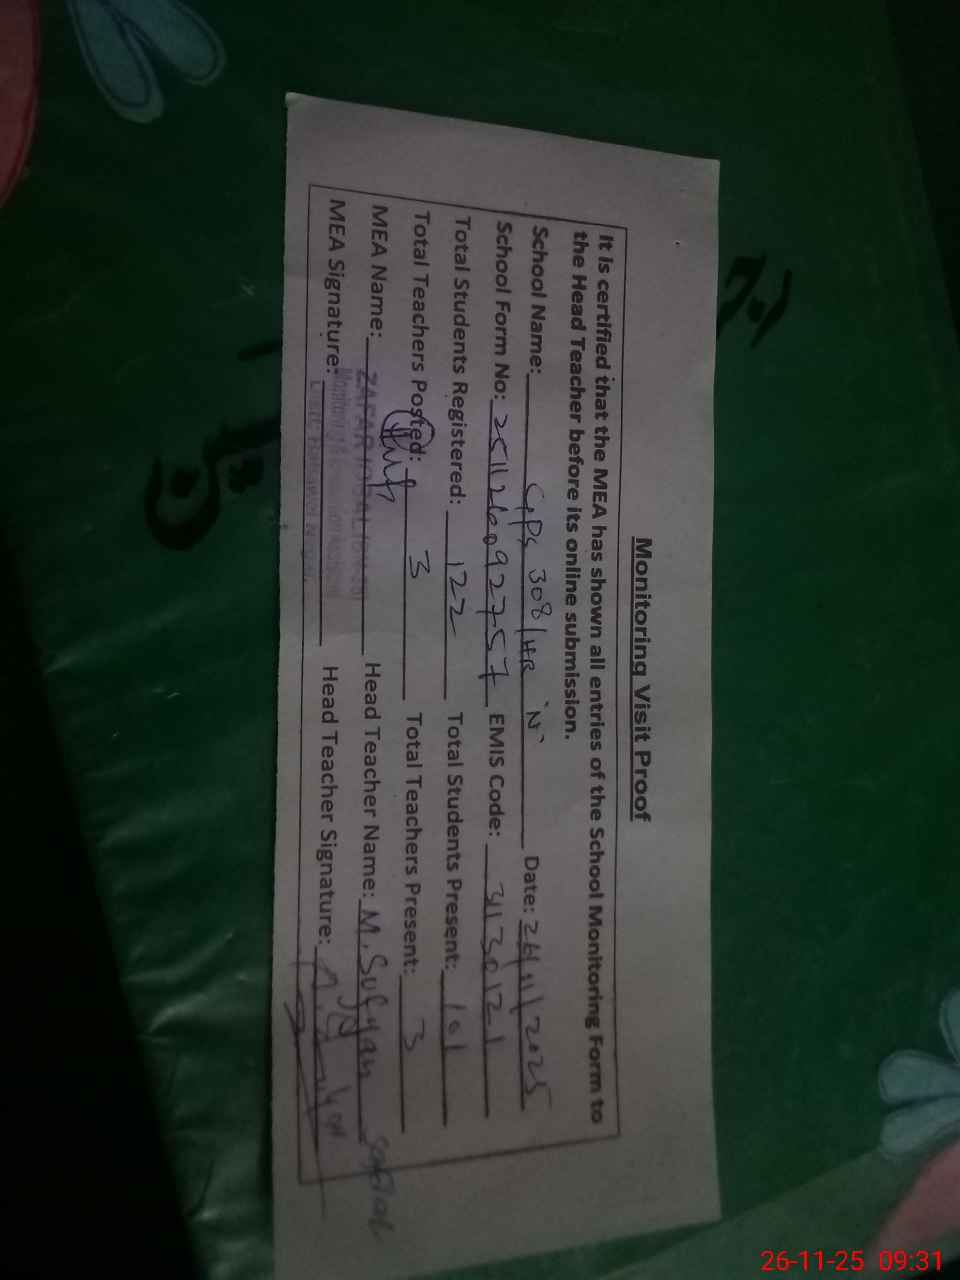 Monitoring Visit Proof
It is certified that the MEA has shown all entries of the School Monitoring Form to
the Head Teacher before its online submission.
School Name: GPS 308/HR 'N' Date: 26/11/2025
School Form No: 251126092757 EMIS Code: 31130121
Total Students Registered: 122 Total Students Present: 101
Total Teachers Posted: 3 Total Teachers Present: 3
MEA Name: ZAFAR IQBAL Head Teacher Name: M. Sufyan
MEA Signature: Head Teacher Signature:
26-11-25 09:31